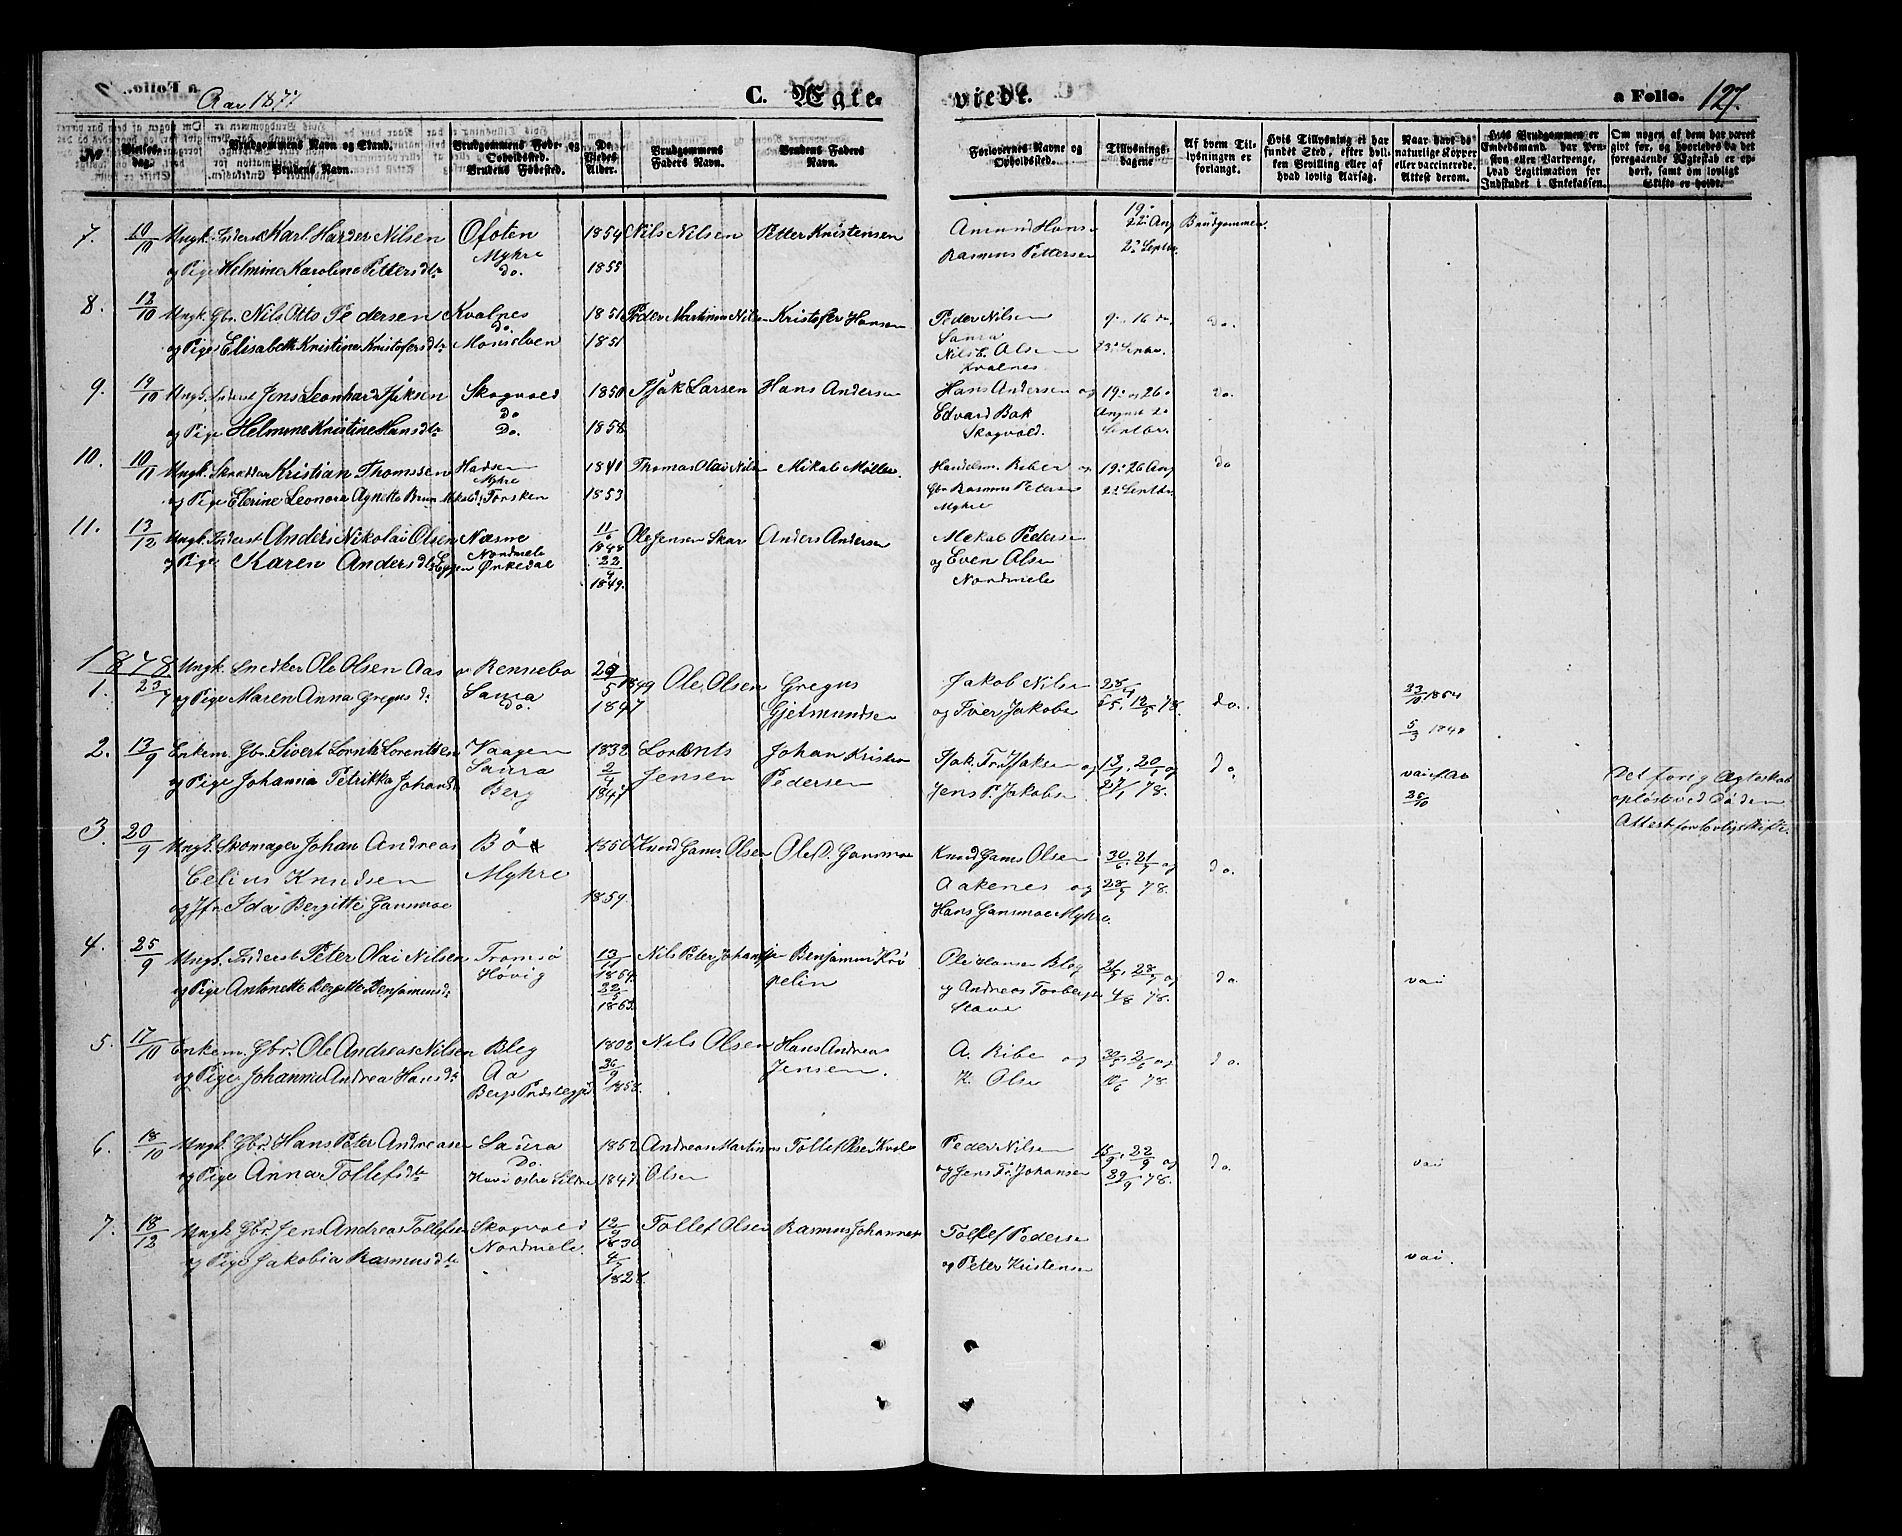 Aar 1877
C. Ægte-
viede.
a Folio. 127.
No
Vielses-dag.
Brudgommens Navn og Stand.
Brudens Navn.
Brudgommens Føde- og Opholdssted.
Brudens Fødested.
De Viedes Alder.
Brudgommens Faders Navn.
Brudens Faders Navn.
Forlovernes Navne og Opholdssted.
Tillysnings-dagene
Af hvem Tillysningen er forlangt.
Hvis Tillysning ei har fundet Sted, efter hvilken Bevilling eller af hvad lovlig Aarsag.
Naar havt de naturlige Kopper eller vaccinerede. Attest derom.
Hvis Brudgommen er Embedsmand, der Pension eller Vartpenge, hvad Legitimation for Indskudet i Enkekassen.
Om nogen af dem har været givt før, og hvorledes da det foregaaende Ægteskab er ophørt, samt om lovligt Skifte er holdt.
7. 10/10 Ungk. Inderst Karl Harder Nilsen Ofoten 1854 Nils Nilsen Petter Kristensen Amund Hans 19. 22 Aug Brudgommen.
Myhre
og Pige Helmine Karoline Petters dtr do. 1855 Rasmus Pettersen 2. Septbr.
8. 12/10 Ungk. Gbr. Nils Otto Pedersen Kvalnes 1851 Peder Martinus Nilsen Kristofer Hansen Peder Nilsen 9. 16 do.
do. Saura
og Pige Elisabeth Kristine Kristofers dtr Monselven 1851 Nils E. Olsen Septbr.
Kvalnes
9. 19/10 Ungk. Inderst Jens Leonhard Isaksen Skogvold 1850 Isak Larsen Hans Andersen Hans Andersen og 19. og 26. do.
do Edvard Bak August 2.
og Pige Helmine Kristine Hans dtr Do. 1858. Skogvold. Septbr.
10. 10/11 Ungk. Skrædder Kristian Thomssen Hadsen 1841 Thomas Olai Nilsen Mikal Møller Handelsm. Riber og 19. 26 Aug do
Myhre
og Pige Elerine Leonora Agnette Brun Mikals d. Torsken 1853 Gbr Rasmus Petersen 2. Septbr.
Myhre
11. 13/12 Ungk. Inderst Anders Nikolai Olsen Næsne 11/6 1848 Ole Jensen Skar Anders Andersen Mekal Pedersen
Nordmele
og Pige Karen Anders dtr Eggen Ørkedal 22/4 1849. og Even Olsen
Nordmele
1878
1. 23/7 Ungk. Snedker Ole Olsen Aas v Rennebo 29/5 1849 Ole Olsen Gregus Jakob Nilsen 28/4 do.
Saura
og Pige Maren Anna Gregus d. do. 1847 Gjetmundsen og Iver Jakobsen 5/5. 12/5 78. 23/10 1864
5/3 1848
2. 13/9 Enkem. Gbr. Sivert Lornts Lorentsen Vaagen 1832 Lorents Johan Kristian Isak Fr. Isaksen og 13/1. 20/1 og do.
Saura
og Pige Johanna Petrikka Johans dtr Berg 2/4 1847 Jensen Pedersen Jens P. Jakobsen 27/1 78. 25/10 Det forig Ægteskab
opløst ved Døden
Attest for lovlig Skifte.
3. 20/9 Ungk. Skomager Johan Andreas Bø 1850 Knud Gams. Olsen Ole D. Gansmoe Knud Gams Olsen 30/6. 21/7 og do.
Celius Knudsen Myhre Aakenes og 28/7 78.
og Jfr. Ida Bergitte Gansmoe 1859. Hans Gansmoe Myhre.
4. 25/9 Ungk. Inderst Peter Olai Nilsen Tromsø 13/11 1854. Nils Peter Johansen Benjamin Krø- Ole Hansen Bleg 21/7. 28/7 og do. vai
og Pige Antonette Bergitte Benjamins dtr Høvig 22/5 1853. pelin og Andreas Torbergs 4/8 78.
Stave
5. 17/10 Enkem. Gbr. Ole Andreas Nilsen Bleg 1808 Nils Olsen Hans Andreas A. Ribe og og do.
og Pige Johanna Andrea Hans dtr Aa 26/9 1858. Jensen. K. Olsen 10/6 78.
Bergs Præstegjd
6. 18/10 Ungk. Gbr. Hans Peter Andreasen Saura 1852 Andreas Martinus Tollef Olsen Kval Peder Nilsen 15/9. 22/9 og do. vai
do.
og Pige Anna Tollefs dtr 1847. Olsen og Jens Fr. Johansen 29/9 78.
7. 18/12 Ungk. Gbr. Jens Andreas Tollefsen Skogvold 12/9 1830 Tollef Olsen Rasmus Johannesen Tollef Pedersen vai.
og Pige Jakobia Rasmus dtr Nordmele 4/7 1828. og Peter Kristensen